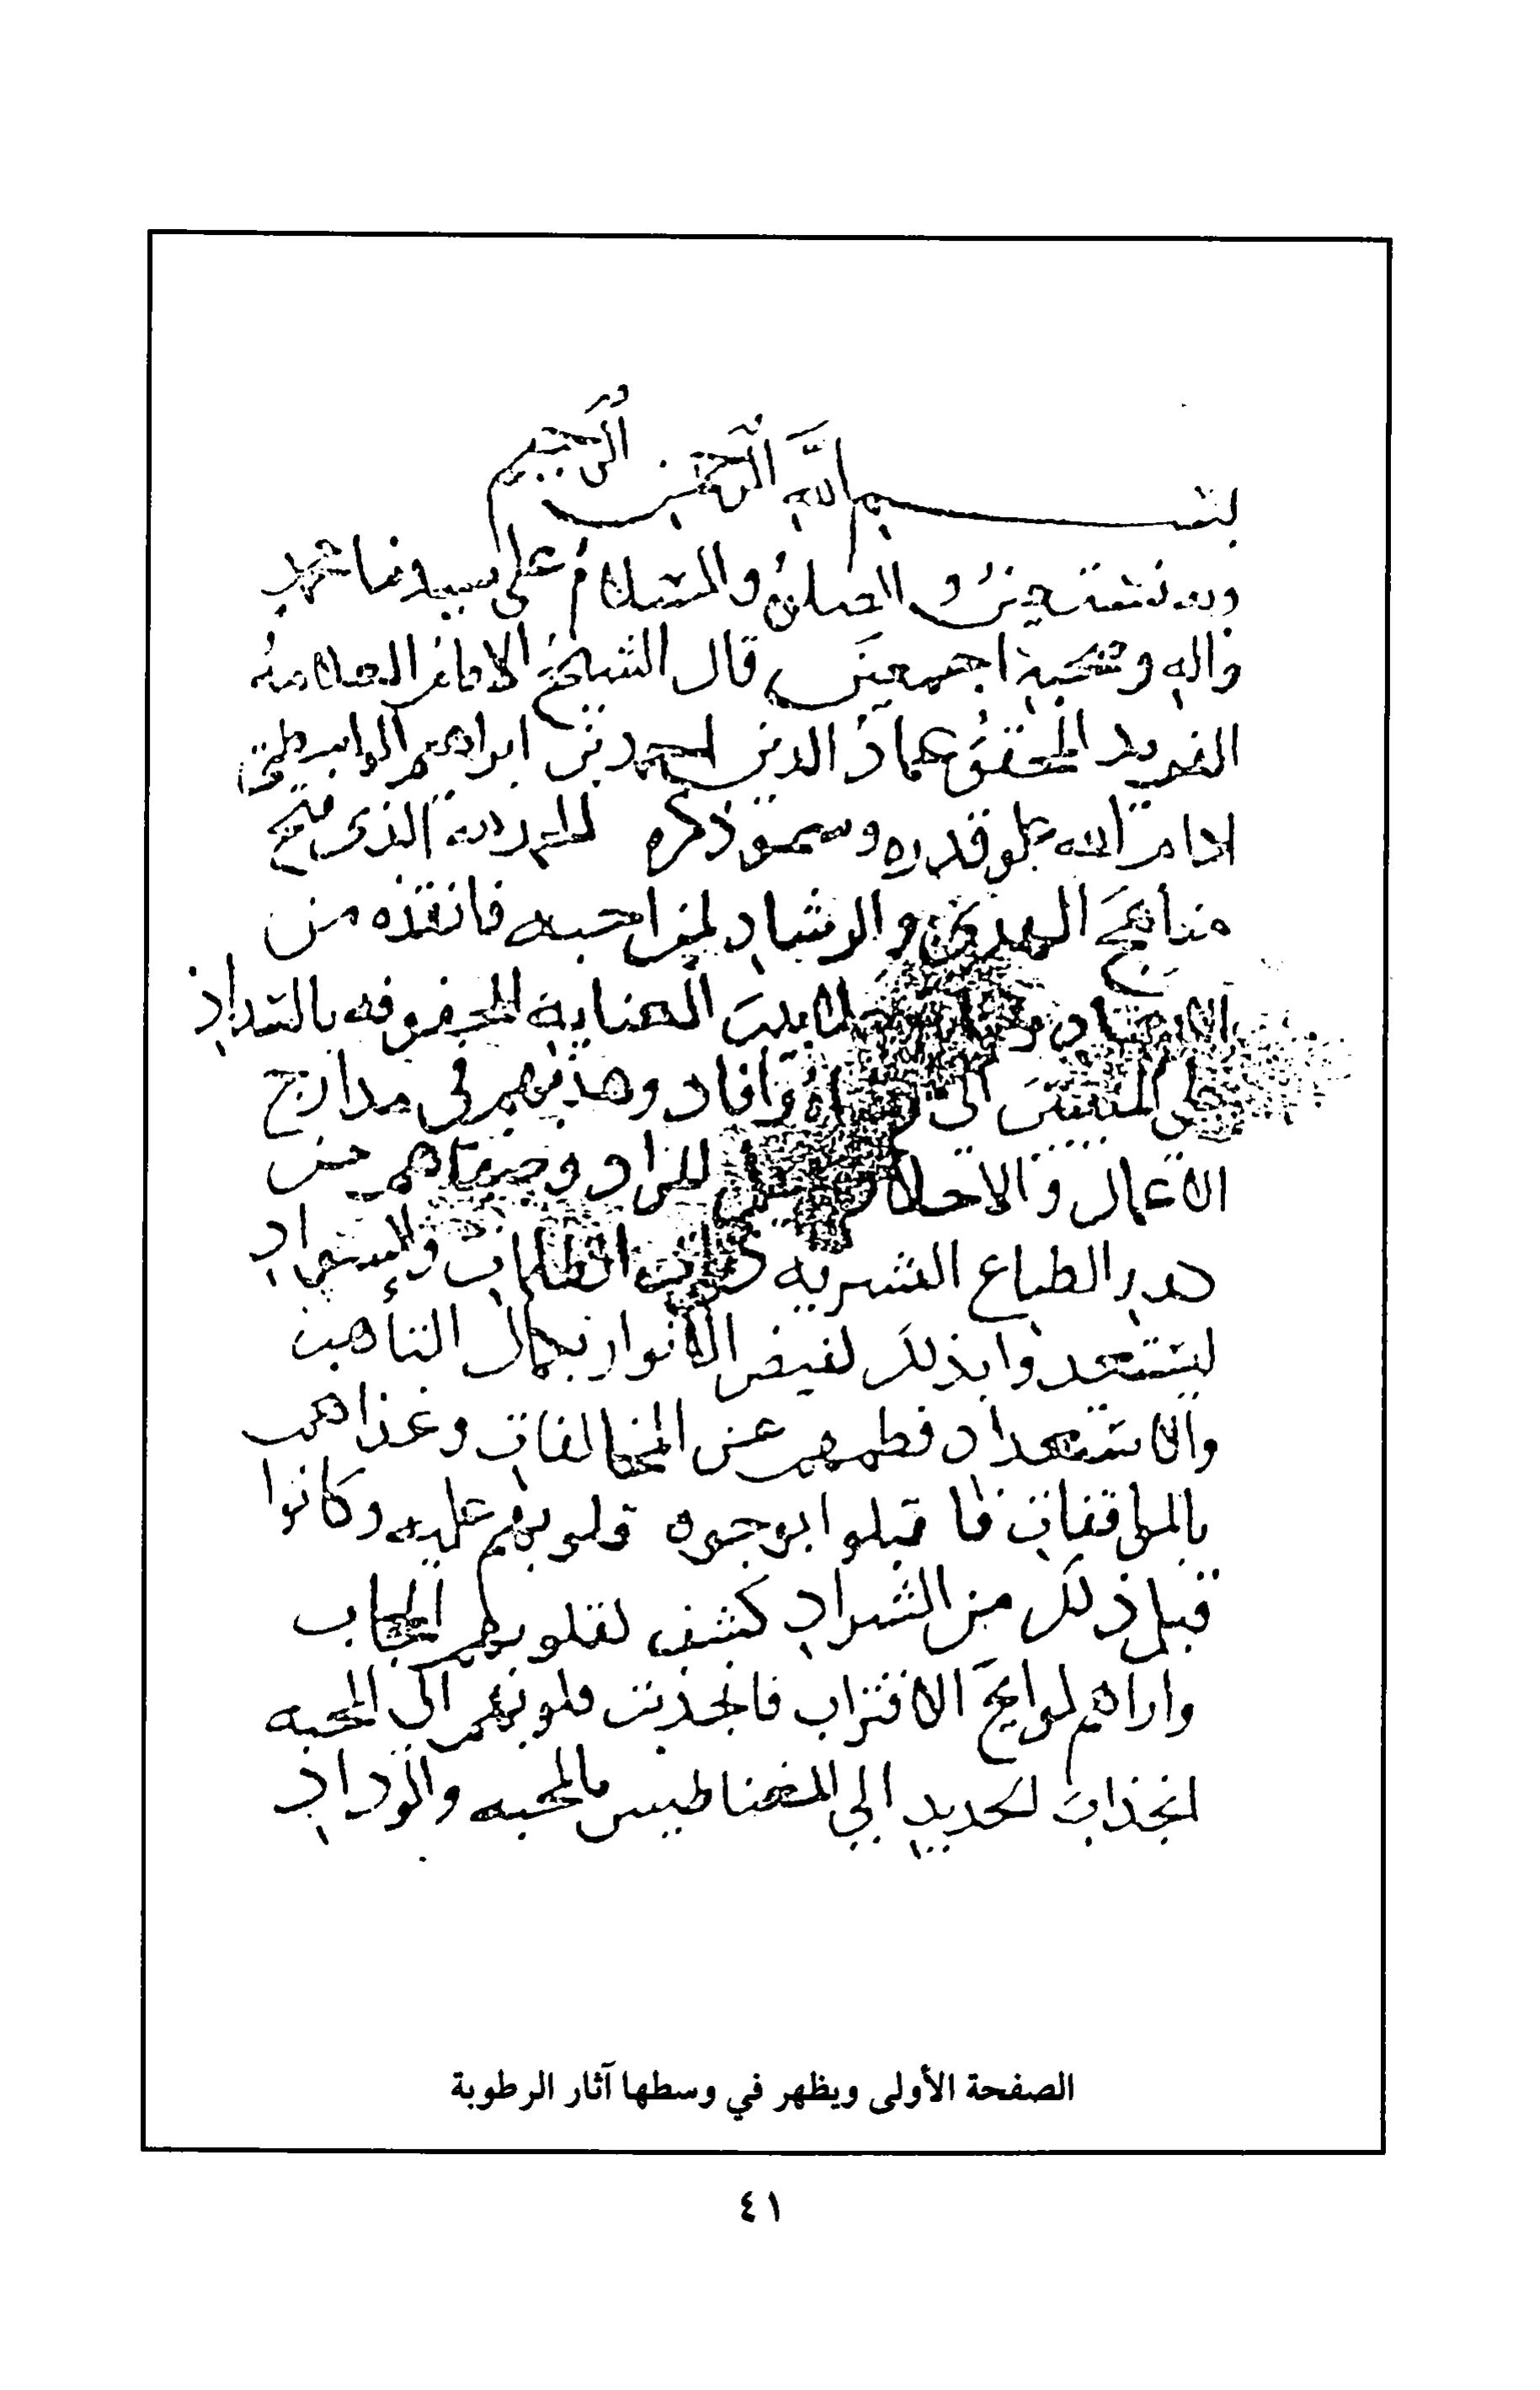 بسم الله الرحمن الرحيم
وبه نستعين والصلاة والسلام على سيدنا محمد
واله وصحبه اجمعين قال الشيخ الامام العلامة
الفريد المحقق عماد الدين احمد بن ابراهيم الواسطي
ادام الله علو قدره وسمو ذكره الحمد لله الذي فتح
مناهج الهدى والرشاد لمن احبه فانقذه من
العناية المحفوفه بالسداد
الى وافاد وهديهم في مدارج
الاعمال والاحلا المراد وصفاهم من
كدر الطباع البشريه الظلمات والسواد
ليستعدوا بذلك لفيض الانوار بكمال التأهب
والاستعداد فطمهم عن المخالفات وغذاهم
بالموافقات فاقبلوا بوجوه قلوبهم عليه وكانوا
قبل ذلك من الشراد كشف لقلوبهم الحجاب
واراهم لوايح الاقتراب فانجذبت قلوبهم الى المحبه
انجذاب الحديد الي المغناطيس بالمحبه والوداد
الصفحة الأولى ويظهر في وسطها آثار الرطوبة
٤١